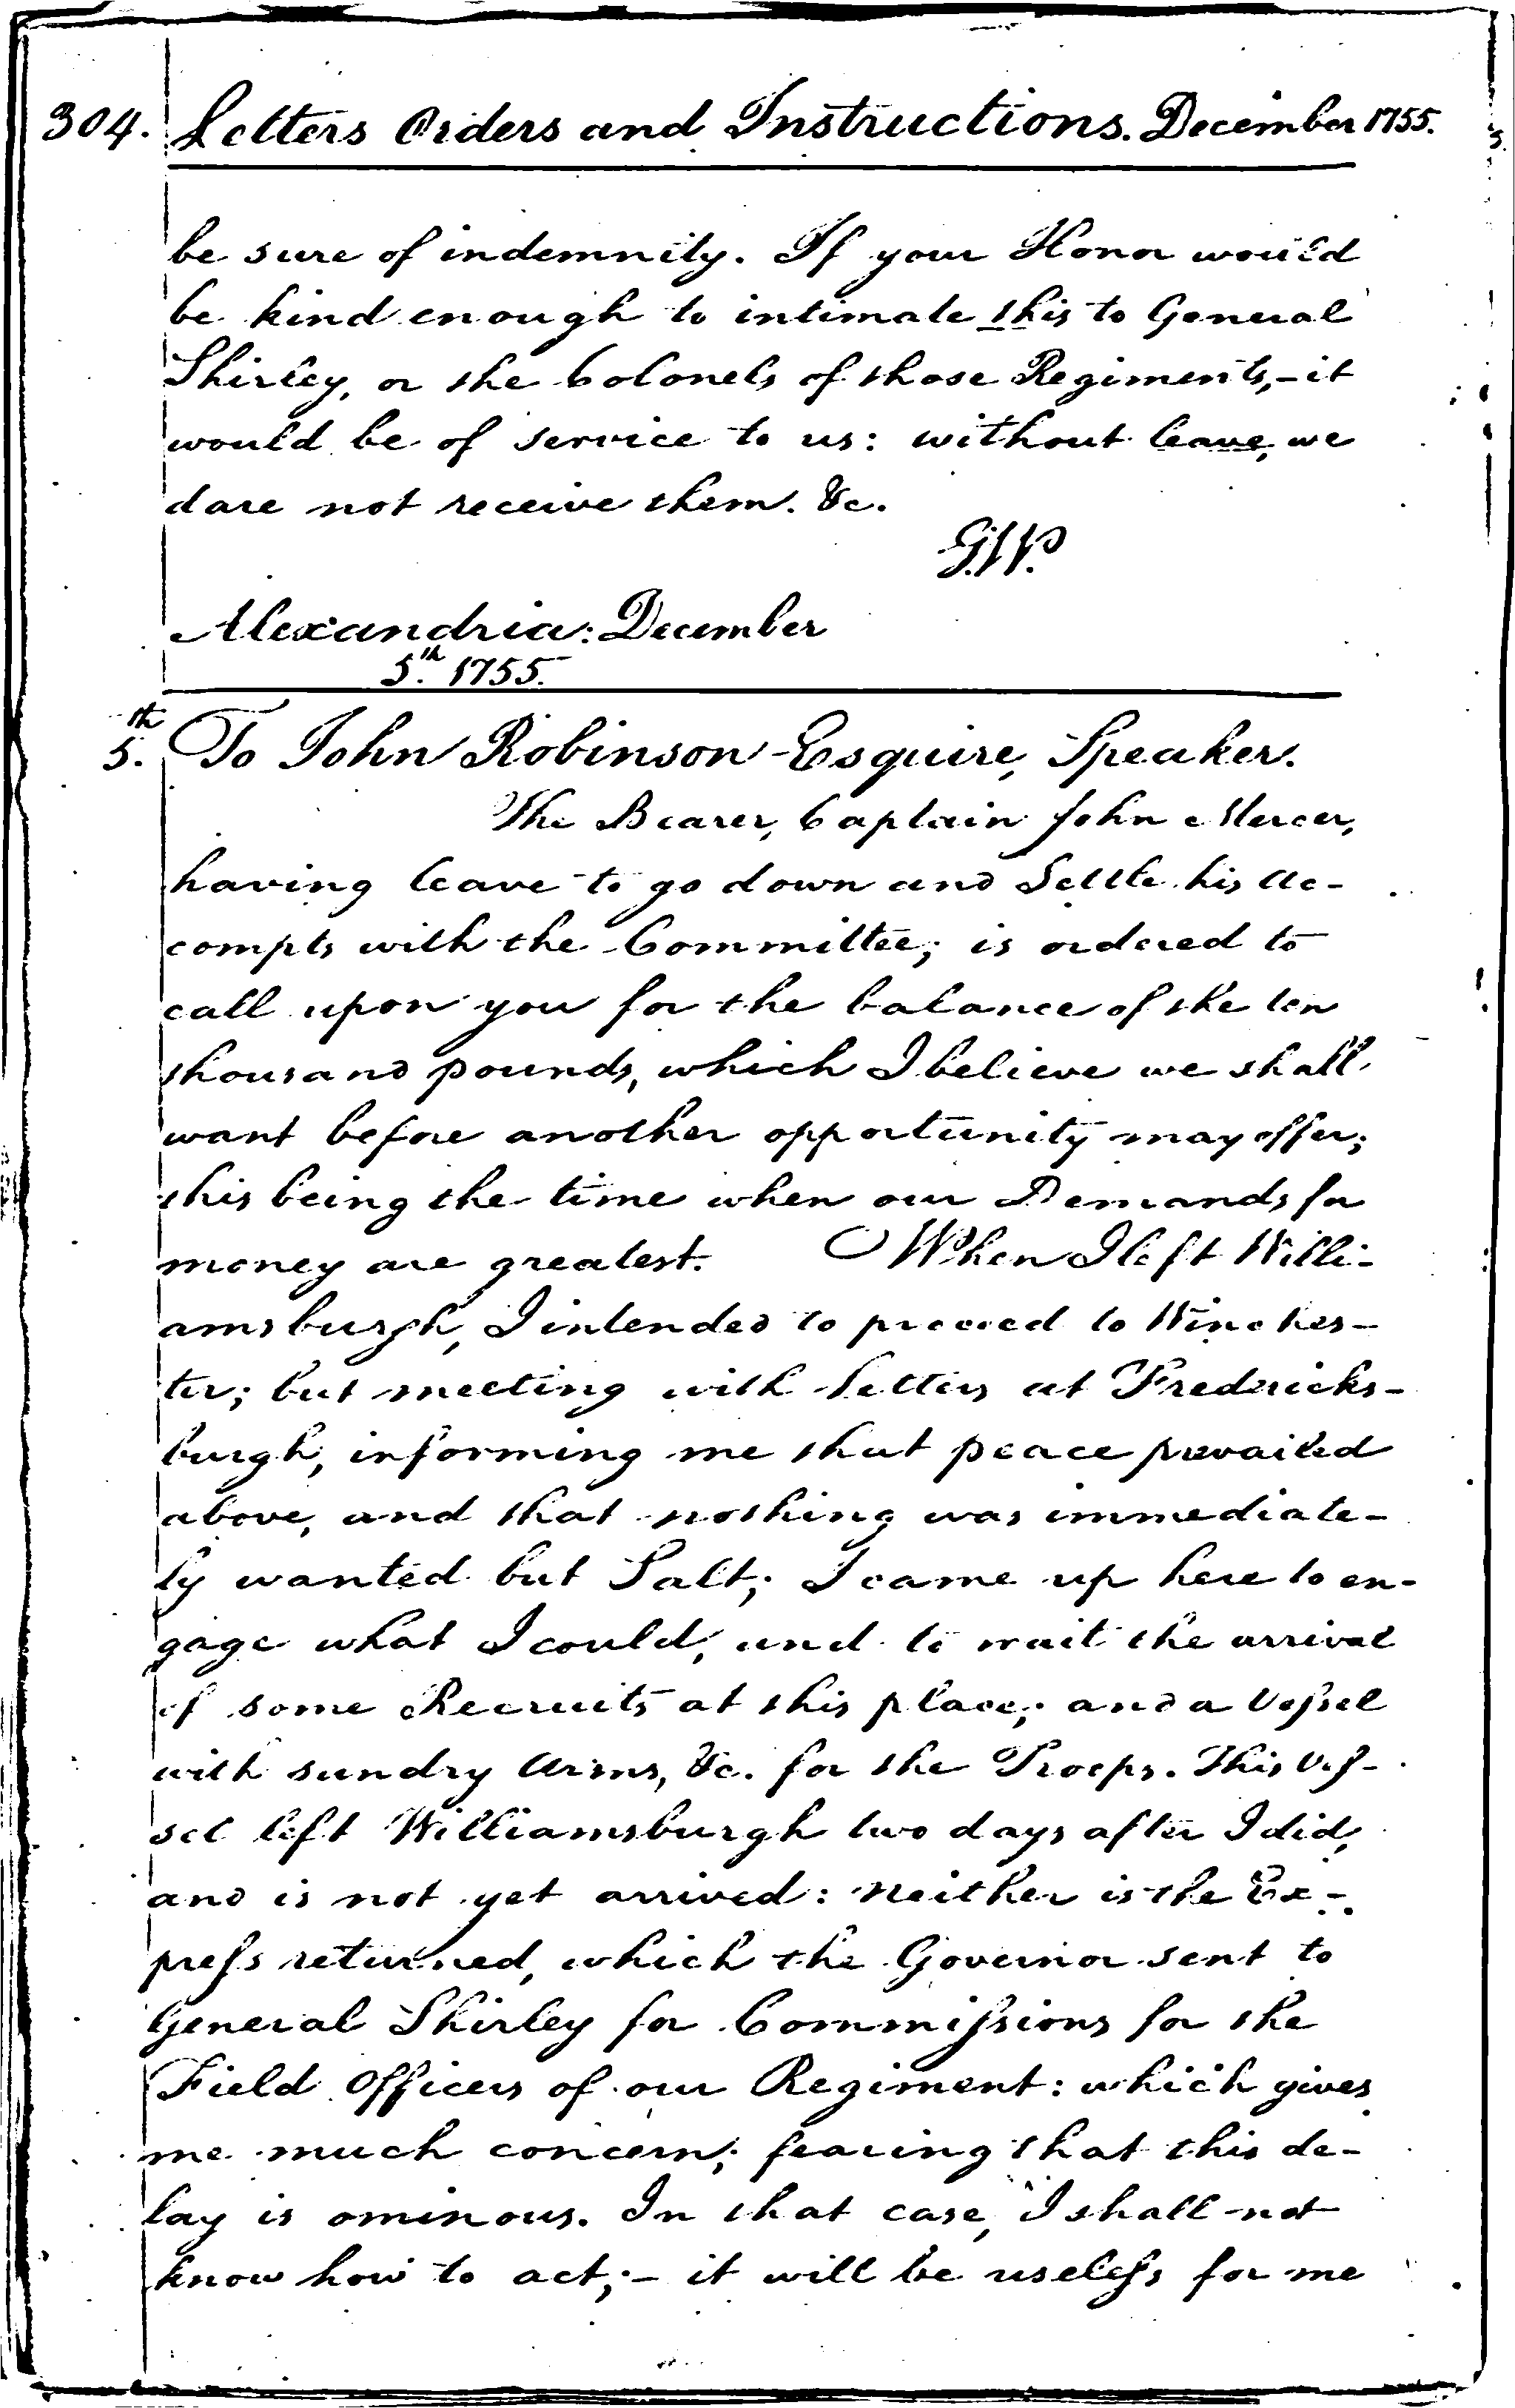 304. Letters Orders and Instructions. December 1755.
be sure of indemnity. If your Honor would
be kind enough to intimate this to General
Shirley, or the Colonels of those Regiments,- it
would be of service to us: without leave, we
dare not receive them. &c.
G:W.
Alexandria: December
5.th 1755.
5.th To John Robinson Esquire, Speaker.
The Bearer, Captain John Mercer,
having leave to go down and Settle his Ac-
compts with the Committee; is ordered to
call upon you for the balance of the ten
thousand pounds, which I believe we shall
want before another opportunity may offer;
this being the time when our Demands for
money are greatest. When I left Willi-
amsburgh, I intended to proceed to Winches-
ter; but meeting with Letters at Fredericks-
burgh, informing me that peace prevailed
above, and that nothing was immediate-
ly wanted but Salt; I came up here to en-
gage what I could, and to wait the arrival
of some Recruits at this place; and a Vessel
with sundry Arms, &c. for the Troops. This Ves-
sel left Williamsburgh two days after I did,
and is not yet arrived: neither is the Ex-
press returned, which the Governor sent to
General Shirley for Commissions for the
Field Officers of our Regiment: which gives
me much concern; fearing that this de-
lay is ominous. In that case, I shall not
know how to act;- it will be useless for me